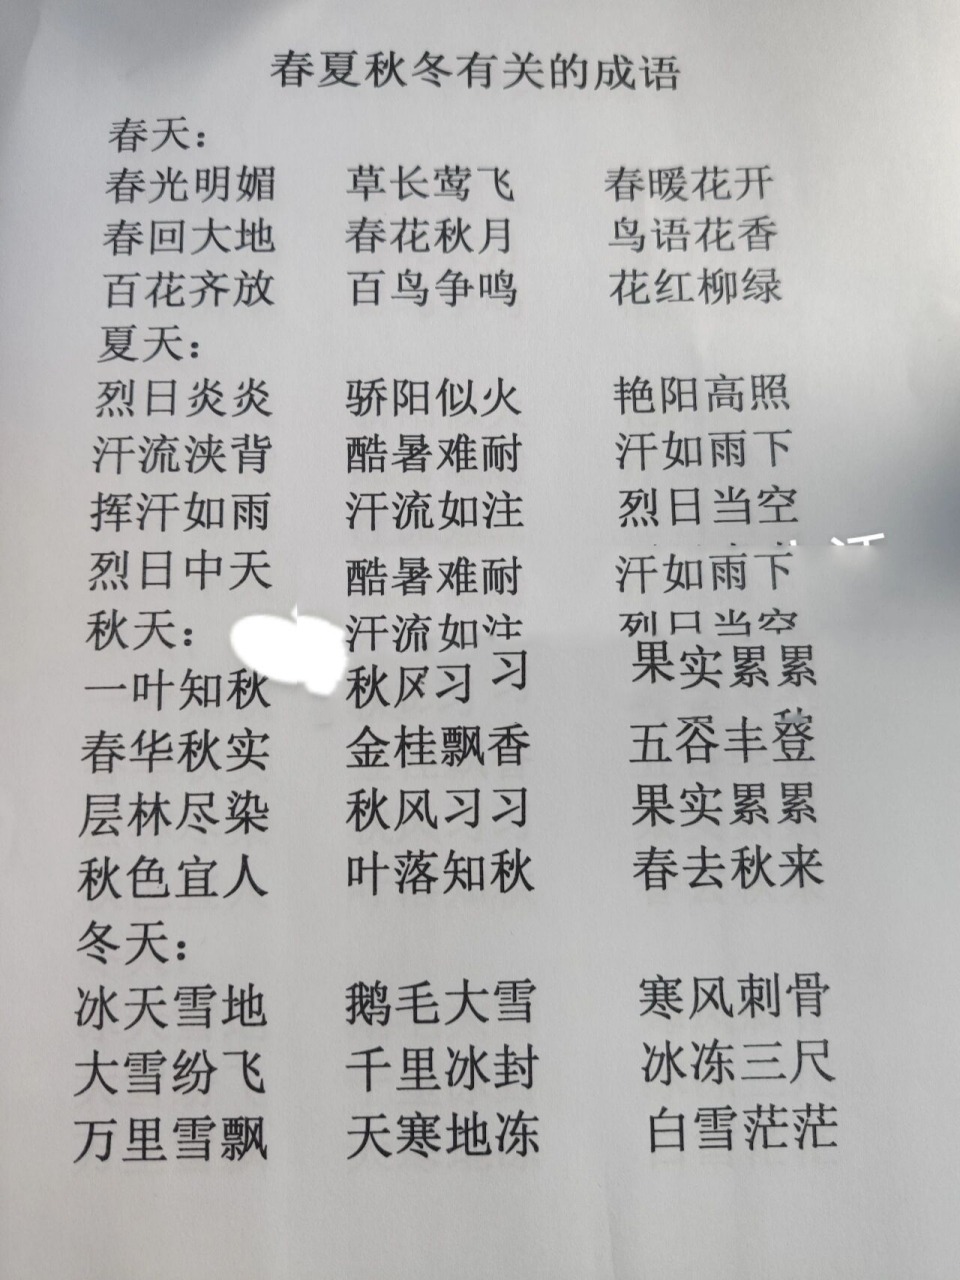 春夏秋冬有关的成语
春天：
春光明媚 草长莺飞 春暖花开
春回大地 春花秋月 鸟语花香
百花齐放 百鸟争鸣 花红柳绿
夏天：
烈日炎炎 骄阳似火 艳阳高照
汗流浃背 酷暑难耐 汗如雨下
挥汗如雨 汗流如注 烈日当空
烈日中天 酷暑难耐 汗如雨下
秋天： 汗流如注 烈日当空
一叶知秋 秋风习习 果实累累
春华秋实 金桂飘香 五谷丰登
层林尽染 秋风习习 果实累累
秋色宜人 叶落知秋 春去秋来
冬天：
冰天雪地 鹅毛大雪 寒风刺骨
大雪纷飞 千里冰封 冰冻三尺
万里雪飘 天寒地冻 白雪茫茫